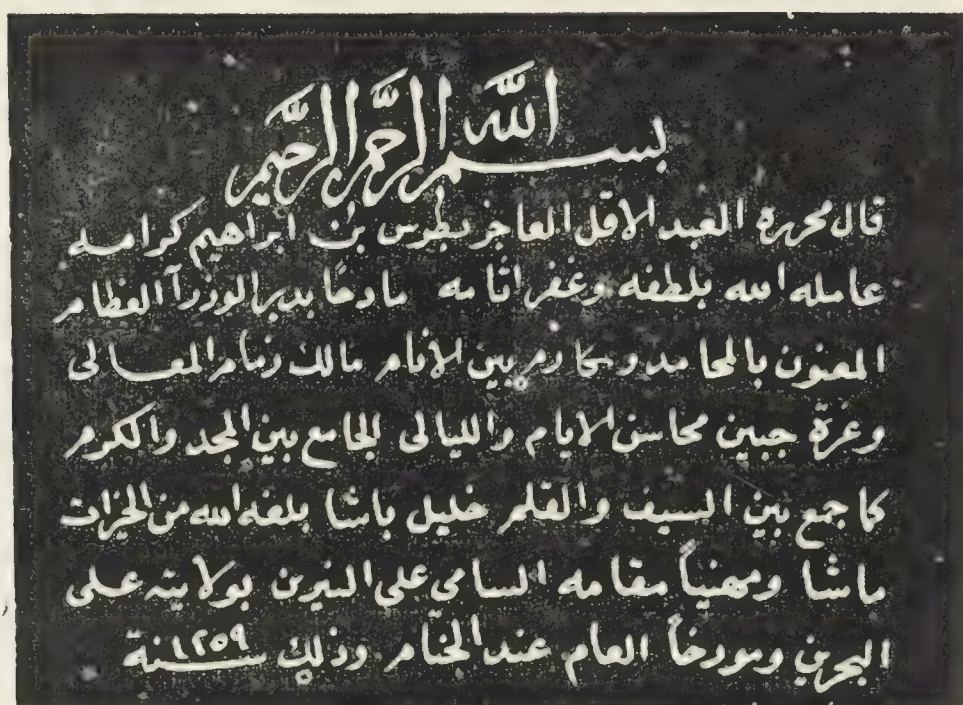 بسم الله الرحمن الرحيم
قال محرره العبد الاقل العاجز بطرس بن ابراهيم كرامه
عامله الله بلطفه وغفر اثامه مادحًا بدر الوزرآ العظام
المعنون بالمحامد ومكارم بين الأنام مالك زمام المعالى
وغرة جبين محاسن الايام والليالى الجامع بين المجد والكرم
كما جمع بين السيف والقلم خليل باشا بلغه الله من الخيرات
ماشا ومهنياً مقامه السامى على النيرين بولايته على
البحرين ومورخاً العام عند الختام وذلك سنة ١٢٥٩